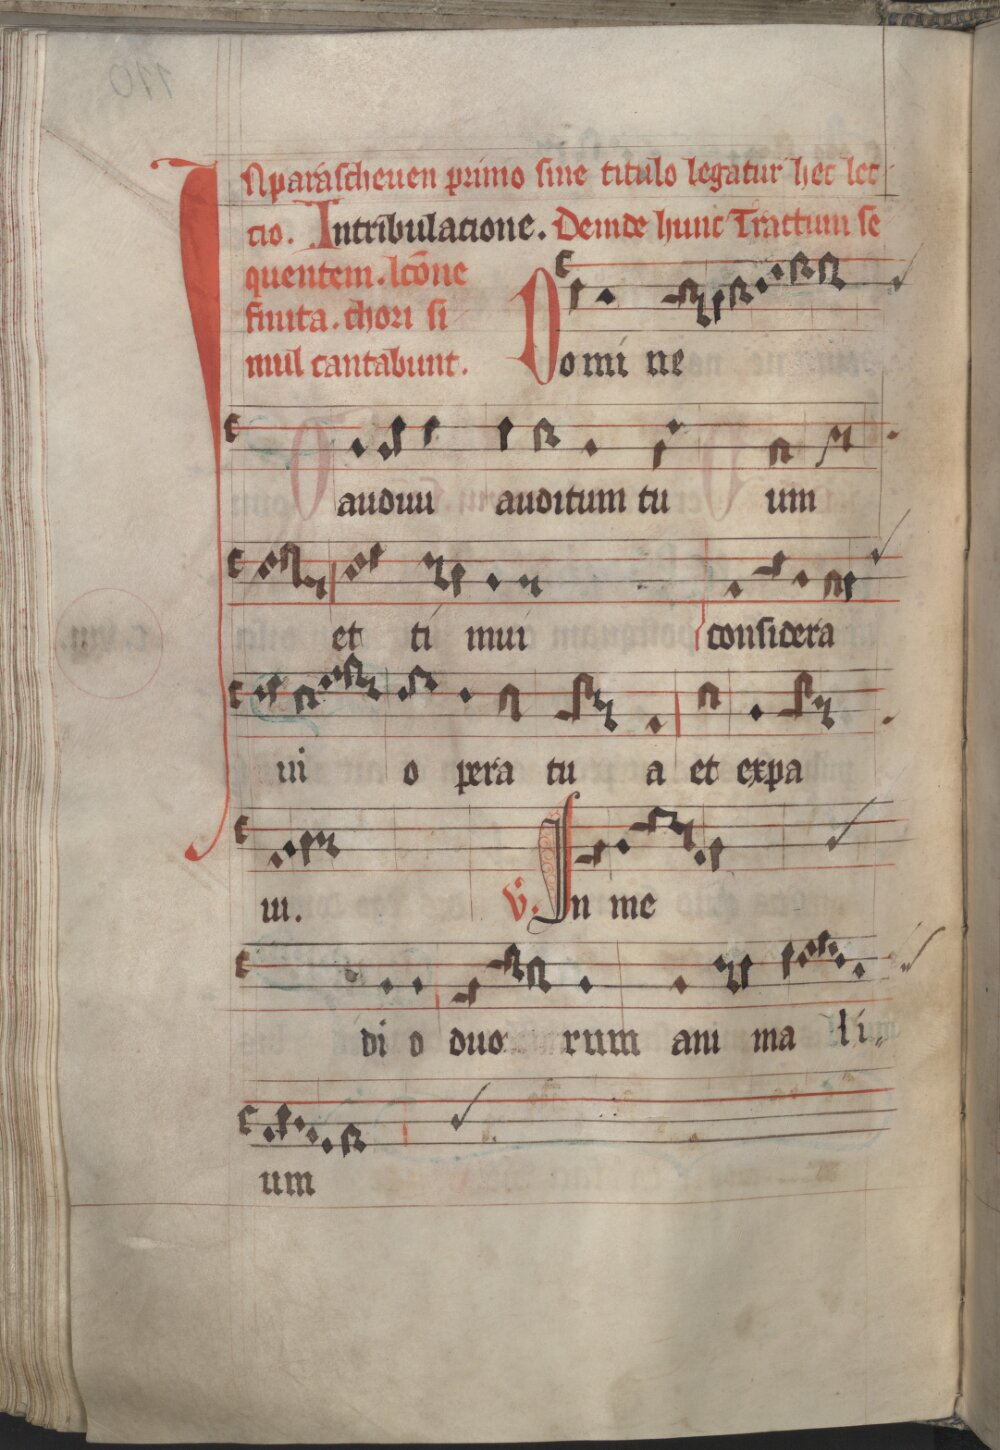 IN parascheuen primo sine titulo legatur hec lec
cio. In tribulacione. Deinde hunc Tractum se
quentem. lcōne
finita. chori si
mul cantabunt.
Domi ne
audiui auditum tu um
et ti mui considera
ui o pera tu a et expa
ui. V. In me
di o duo rum ani ma li
um